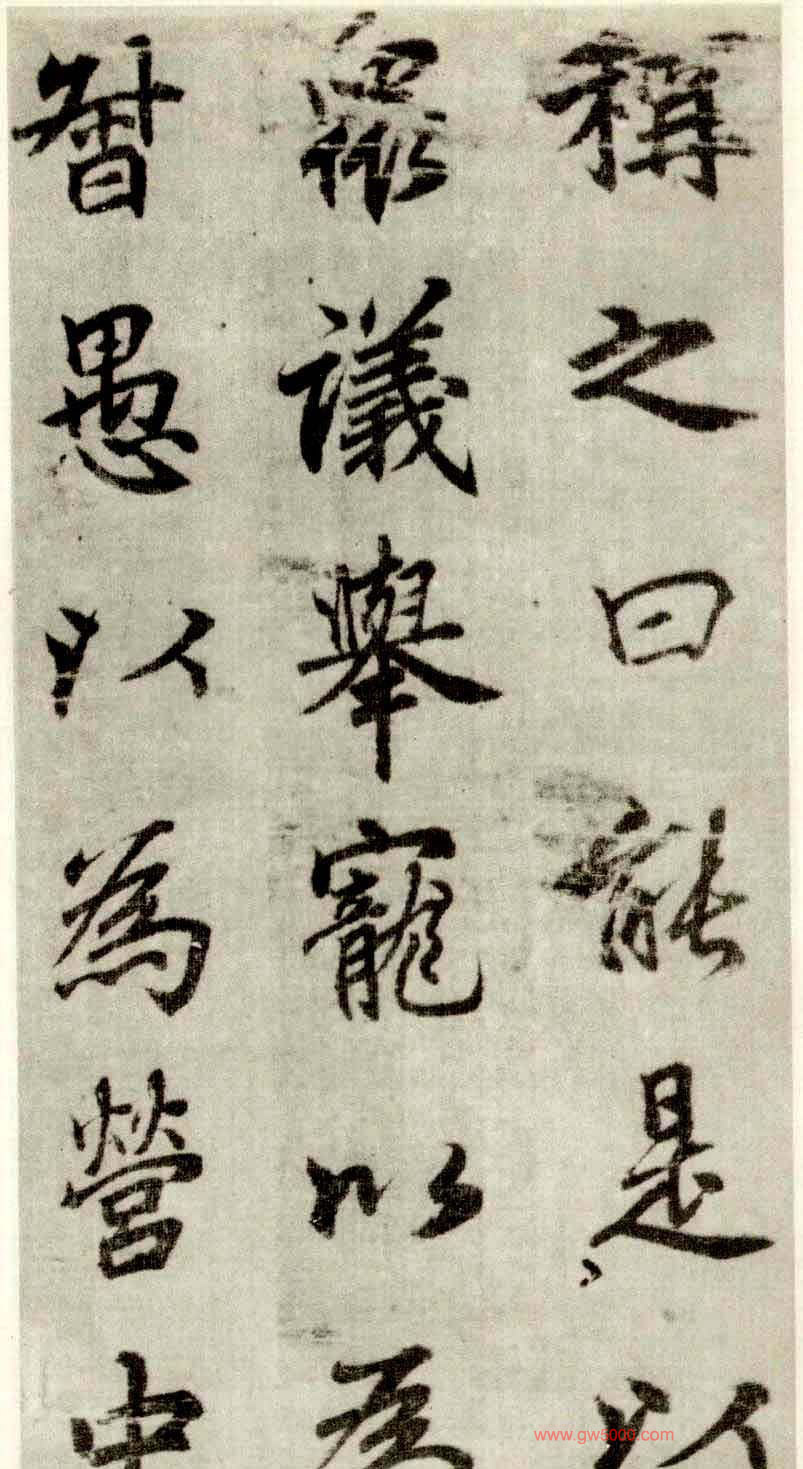 稱之曰能是以
衆議舉寵以為
督愚以為營中
www.gw5000.com